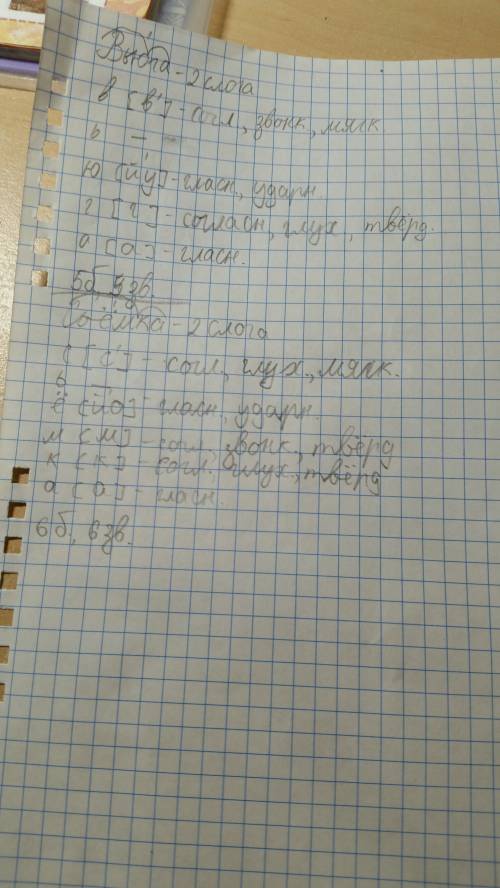 Вьюга - 2 слога
в [в'] - согл, звонк., мягк.
ь —
ю [йу] - гласн, ударн.
г [г] - согласн, глух, твёрд.
а [а] - гласн.
5б 5зв.
Съёмка - 2 слога
с [с'] - согл, глух., мягк.
ь —
ё [йо] - гласн, ударн.
м [м] - согл, звонк., твёрд
к [к] - согл, глух., твёрд
а [а] - гласн.
6б, 6зв.